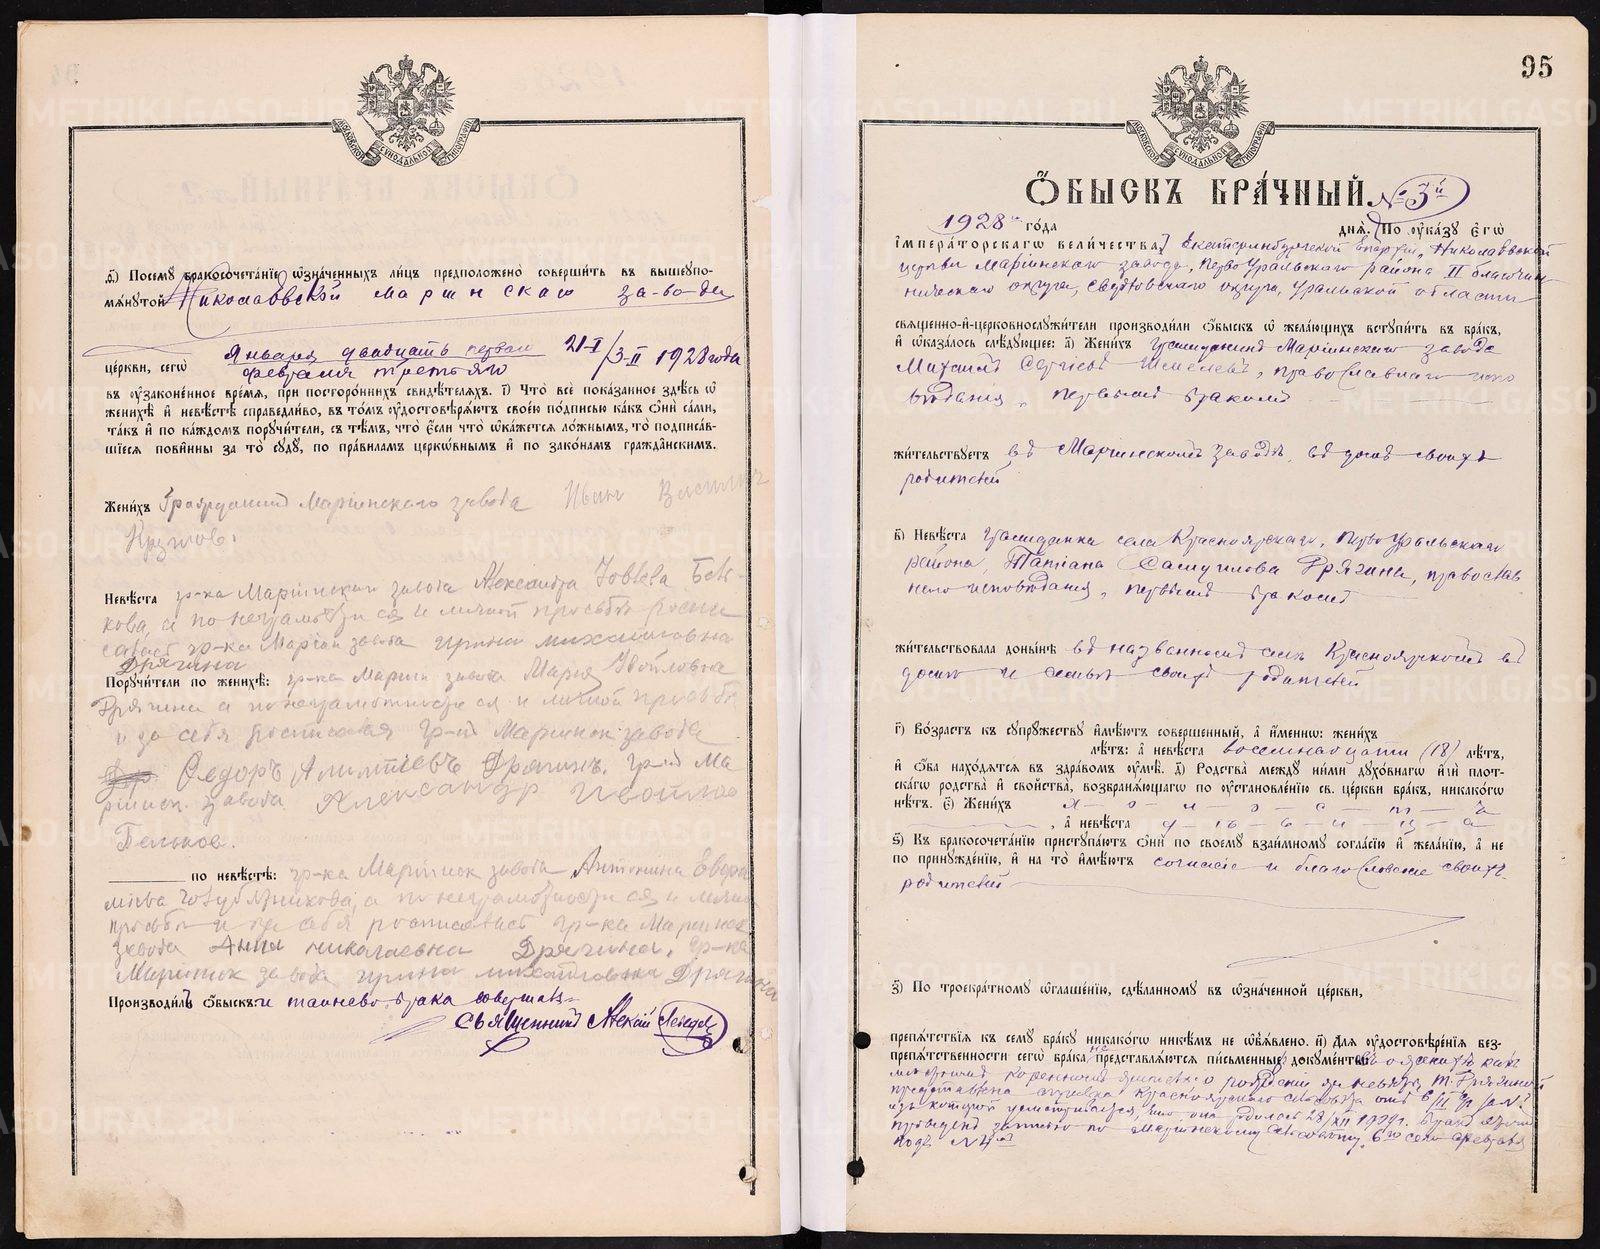 д҃) Посемꙋ бракосочета́нїе ѡ҆зна́ченныхъ ли́цъ предположено̀ соверши́ть въ вышеупо-
мѧ́нутой Николаевской Маріинскаго за-во-да
Января двадцать перваго 21-I
це́ркви, сегѡ̀ февраля третьяго /3-II 1928 года
въ ᲂу҆зако́ненное вре́мѧ, при посторо́ннихъ свидѣ́телѧхъ. і҃) Что̀ всѐ пока́занное здѣ́сь ѡ҆
женихѣ̀ и҆ невѣ́стѣ справедли́во, въ то́мъ ᲂу҆достовѣрѧ́ютъ свое́ю по́дписью ка́къ ѻ҆нѝ са́ми,
та́къ и҆ по ка́ждомъ порꙋчи́тели, съ тѣ́мъ, что̀ є҆́сли что̀ ѡ҆ка́жетсѧ ло́жнымъ, то̀ подписа́в-
шїесѧ пови́нны за то̀ сꙋдꙋ̀, по пра́виламъ церко́внымъ и҆ по зако́намъ гражда́нскимъ.
Жени́хъ Гражданинъ Маріинскаго завода Иванъ Василич
Круглов.
Невѣ́ста гр-ка Маріинскаго завода Александра Іовлева Бель-
кова, а по неграмотности ея и личной просьбѣ роспи
гр-ка Маріин завода Ирина Михайловна
Дрягина
Порꙋчи́тели по женихѣ̀: гр-ка Мариин. завода Мария
Дрягина а по неграмотности ея и личной просьбѣ
и за себя росписался гр-нъ Мариинск завода
Федоръ Алимпіевъ Дрягинъ. гр-нъ Ма
риинск. завода Александр
Бельков.
по невѣ́стѣ: гр-ка Маріинск завода Антонина
а по неграмотности ея и личной
просьбѣ и за себя росписалась гр-ка Мариинск
завода Анна Николаевна Дрягина, гр-ка
Маріинск завода Ирина Михайловна Дрягина
Производи́лъ ѻ҆́быскъ и таинство брака совершалъ
Священникъ Алексій Лебедев
95
Ѻ҆́быскъ бра́чный. № 3й
1928го го́да днѧ̀. По ᲂу҆ка́зꙋ Є҆гѡ̀
І҆мпера́торскагѡ вели́чества, Екатеринбургской Епархіи, Николаевской
церкви Маріинскаго завода, Перво Уральскаго района II благочин
ническаго округа, Свердловскаго округа, Уральской области
свѧще́нно-и҆-церковнослꙋжи́тели производи́ли ѻ҆́быскъ ѡ҆ жела́ющихъ встꙋпи́ть въ бра́къ,
и҆ ѡ҆каза́лось слѣ́дꙋющее: а҃) Жени́хъ Гражданинъ Маріинскаго завода
Михаилъ Сергіевъ Шмелевъ, православнаго испо
вѣданія, первымъ бракомъ
жи́тельствꙋетъ въ Маріинскомъ заводѣ, въ домѣ своихъ
родителей
в҃) Невѣ́ста Гражданка села Красноярскаго, Перво Уральскаго
района, Татіана Самуилова Дрягина, православ
наго исповѣданія, первымъ бракомъ
жи́тельствовала доны́нѣ въ названномъ селѣ Красноярскомъ въ
домѣ и семьѣ своихъ родителей
г҃) Во́зрастъ къ сꙋпрꙋ́жествꙋ и҆мѣ́ютъ соверше́нный, а҆ и҆́менно: жени́хъ
лѣ́тъ: а҆ невѣ́ста восемнадцати (18) лѣ́тъ,
и҆ ѻ҆́ба нахо́дѧтсѧ въ здра́вомъ ᲂу҆мѣ̀. д҃) Родства̀ междꙋ̀ ни́ми дꙋхо́внагѡ и҆́ли плот-
ска́гѡ родства̀ и҆ сво́йства, возбранѧ́ющагѡ по ᲂу҆становле́нїю св. це́ркви бра́къ, никако́гѡ
нѣ́тъ. є҃) Жени́хъ х — о — л — о — с — т — ъ
, а҆ невѣ́ста д — ѣ — в — и — ц — а
ѕ҃) Къ бракосочета́нїю пристꙋпа́ютъ ѻ҆нѝ по своемꙋ̀ взаи́мномꙋ согла́сїю и҆ жела́нїю, а҆ не
по принꙋжде́нїю, и҆ на то̀ и҆мѣ́ютъ согласіе и благословеніе своихъ
родителей
з҃) По троекра́тномꙋ ѡ҆глаше́нїю, сдѣ́ланномꙋ въ ѡ҆зна́ченной це́ркви,
препѧ́тствїѧ къ семꙋ̀ бра́кꙋ никако́гѡ никѣ́мъ не ѡ҆б̾ѧ́влено. и҃) Длѧ ᲂу҆достовѣре́нїѧ без-
препѧ́тственности сегѡ̀ бра́ка не представлѧ́ютсѧ пи́сьменные докꙋме́нты:
о рожденіи же невѣсты Т. Дрягиной
представлена справка Красноярскаго сельсовѣта отъ 6/II
изъ которой усматривается, что она родилась 28/XII 1909 г. Бракъ
записью по Маріинскому 6го сего февраля
подъ № 4мъ